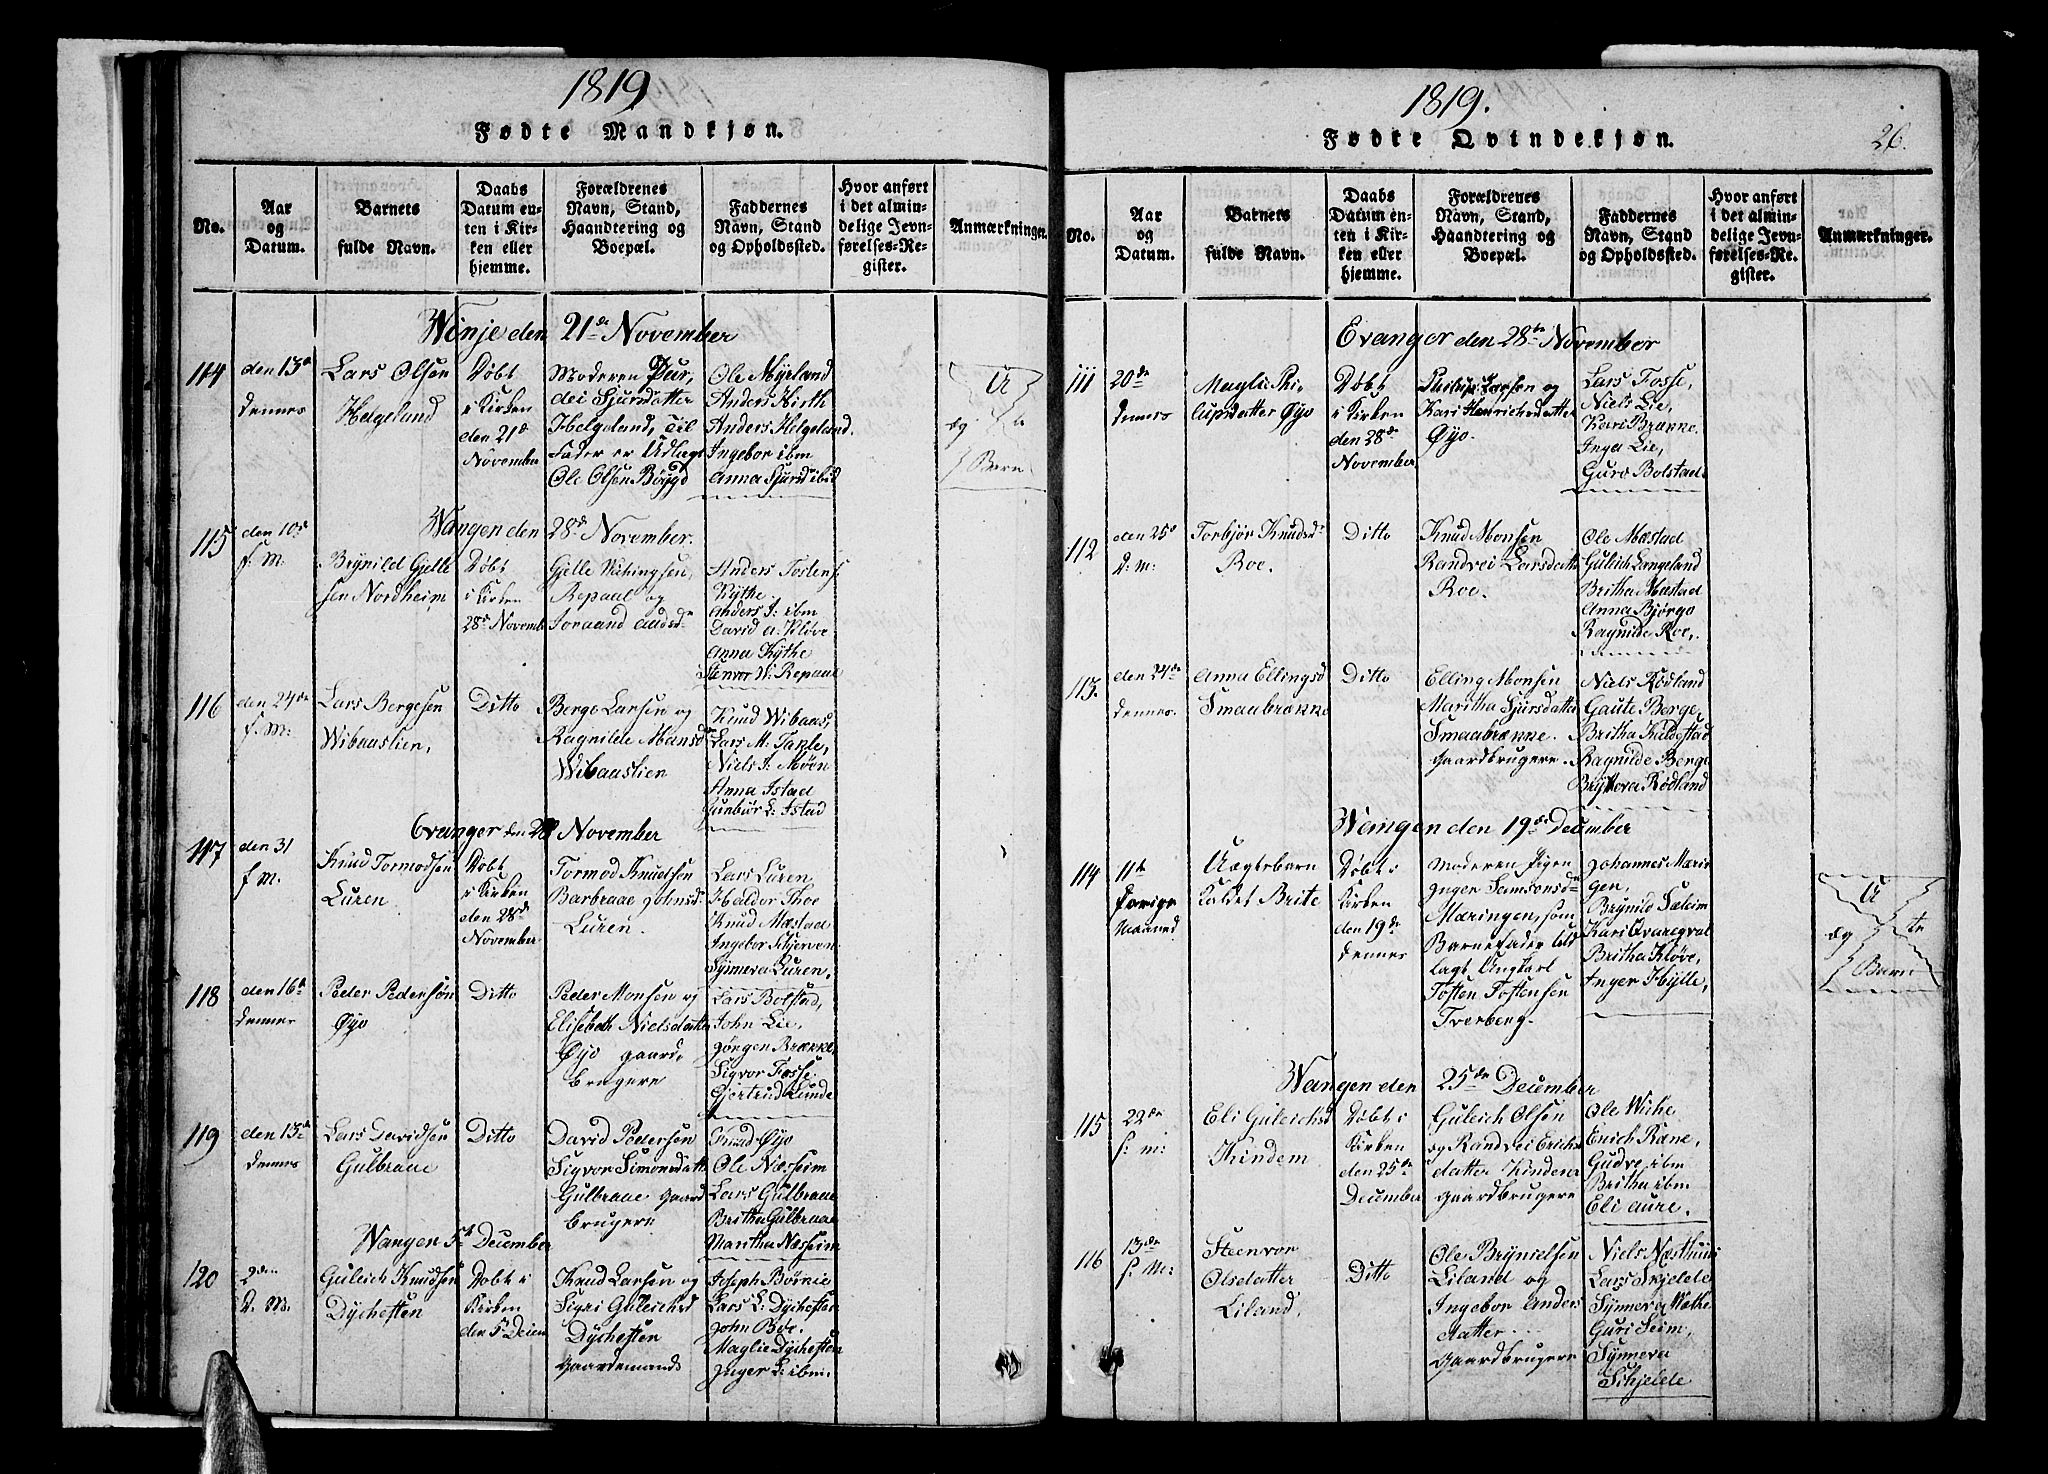 1819
Fødte Mandkjøn.
No.
Aar
og
Datum.
Barnets
fulde Navn.
Daabs
Datum en-
ten i Kir-
ken eller
hjemme.
Forældrenes
Navn, Stand,
Haandtering og
Boepæl.
Faddernes
Navn, Stand
og Opholdssted.
Hvor anført
i det almin-
delige Jevn-
førelses-Re-
gister.
Anmærkninger.
Winje den 21de November
114
den 13de
dennes
Lars Olsen
Helgeland
Døbt
i Kirken
den 21de
November
Moderen Pur,
dei Sjursdatter
Helgeland, til
Fader er Udlagt
Ole Olsen Bøygd
Ole Myrland
Anders Hirth
Anders Helgeland.
Ingebor ibm
Anna Sjursd ibid
U
æg te
Barn
Wangen den 28de November.
115
den 10de
f: M:
Brynild Gjelle
sen Nordheim
Døbt
i Kirken
28de Novemb
Gjelle
Repaal og
Anders Tostens:
Kythe
Anders T: ibm
David A: Kløve
Anna Kythe
Stenvor W: Repaal
116
den 24de
f. M:
Lars Bergesen
Wibaastien,
Ditto
Berge Larsen og
Ragnilde Mansd
Wibaastien
Knud Wibaas,
Lars M. Takle,
Niels I: Møen
Anna Istad
Gunbiør L: Istad
Evanger den 28 November
117
den 31
f M:
Knud Tormodsen
Luren
Døbt
i Kirken
den 28de
November
Tormod Knudsen
Barbraae Johnsd:
Luren.
Lars Luren
Haldor Thoe
Knud Mæstad
Ingebor Skjerven
Synneva Luren,
118
den 16de
dennes
Peder Pedersøn
Øyo
Ditto
Peder Monsen og
Elisebeth Nielsdatter
Øyo gaard,
brugere
Lars Bolstad,
John Lie,
Jørgen Brække,
Sigvor Fosse.
Gjertrud Lunde
119
den 13de
dennes
Lars Davidsen
Gulbraae
Ditto
David Pedersen
Sigvor Simonsdatt
Gulbraae gaard
brugere
Knud Øyo
Ole Næsheim
Lars Gulbraae
Britha Gulbraae
Maritha Næsheim
Wangen 5te December
120
2den
D. M.
Guleich Knudsen
Dycheften
Døbt i
Kirken
den 5te Decem
Knud Larsen og
Sigri Guleichsd
Dycheften
Gaardemands
Joseph Børnie
Lars L: Dycheften
John Boe.
Maglie Dycheften
Inger L: ibm:
1819.
Fødte Qvindekjøn.
26.
No.
Aar
og
Datum.
Barnets
fulde Navn.
Daabs
Datum en-
ten i Kir-
ken eller
hjemme.
Forældrenes
Navn, Stand,
Haandtering og
Boepæl.
Faddernes
Navn, Stand
og Opholdssted.
Hvor anført
i det almin-
delige Jevn-
førelses-Re-
gister.
Anmærkninger.
Evanger den 28de November
111
20de
dennes
Maglie Phi-
lipsdatter Øyo
Døbt
i Kirken
den 28de
November
Philip Larsen og
Kari Henrichsdatter
Øyo.
Lars Fosse,
Niels Lie,
Kari Brække.
Inga Lie,
Guro Bolstad
112
den 25de
D: M:
Torbjør Knudsdr
Roe.
Ditto
Knud Monsen
Randvei Larsdatter
Roe.
Ole Mæstad
Gulich Langeland
Britha Mæstad
Anna Bjørgo
Ragnilde Roe,
113.
den 24de
dennes.
Anna Ellingsd
Smaabrække
Ditto
Elling Monsen
Maritha Sjursdatter
Smaabrække.
Gaardbrugere.
Niels Rødland
Gaute Berge,
Britha Kaldestad
Ragnilde Berge
Brytteva Rødland
Wangen den 19de December
114
11te
Forrige
Maaned
Uægtebarn
Kaldet Brite
Døbt i
Kirken
den 19de
dennes
Moderen Pigen
Inger Samsonsd
Mæringen, som
Barnefader Ud
lagt Ungkarl
Tosten Tostensen
Tverberg.
Johannes Mærin
gen,
Brynild Sæheim
Kari Qvaregval
Britha Kløve,
Inger Hylle,
U
æg te
Barn
Wangen den 25de December
115
22de
f: m:
Eli Guleichsd
Kindem
Døbt i
Kirken
den 25de
December
Guleich Olsen
og Randvei Erichs
datter Kindem
gaardbrugere
Ole Wiche
Erich Ræne,
Gudve ibm
Britha ibm
Eli Aure.
116
13de
f: M:
Steenvor
Olsdatter
Liland.
Ditto
Ole Brynielsen
Liland og
Ingebor Anders
datter
Gaardbrugere
Niels Næsthuus
Lars Skjelde
Synneva Wæthe
Guri Seim,
Synneva
Schjelde